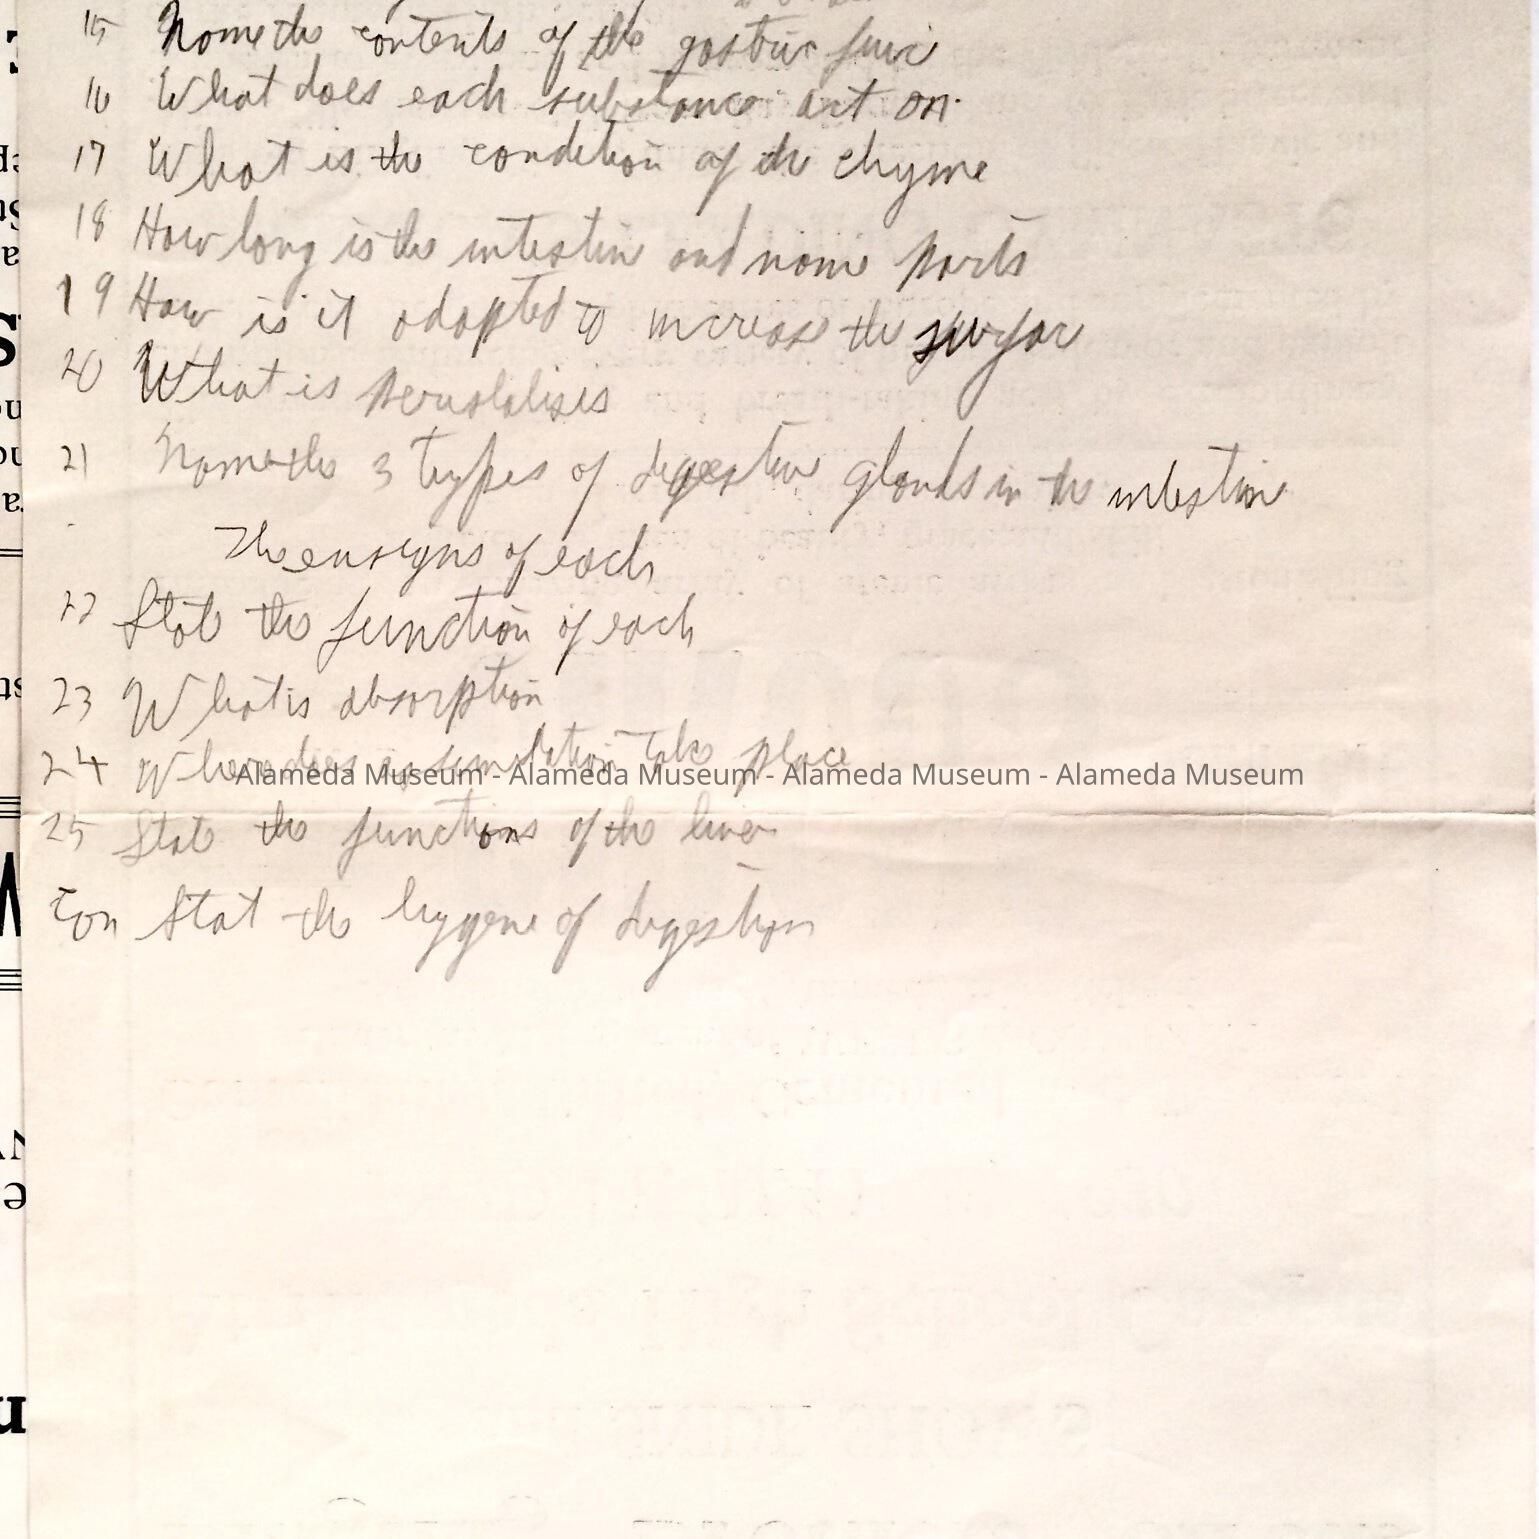 15 Name the contents of the gastric juice
16 What does each substance act on.
17 What is the condition of the chyme
18 How long is the intestin and name parts
19 How is it adapted to increase the surfac
20 What is perustalisis
21 Name the 3 types of digestive glands in the intestine
The ensigns of each
22 State the function of each
23 What is absorption
24 Where does assimilation take place
Alameda Museum - Alameda Museum - Alameda Museum - Alameda Museum
25 State the functions of the liver
Ton Stat the hygene of digestion